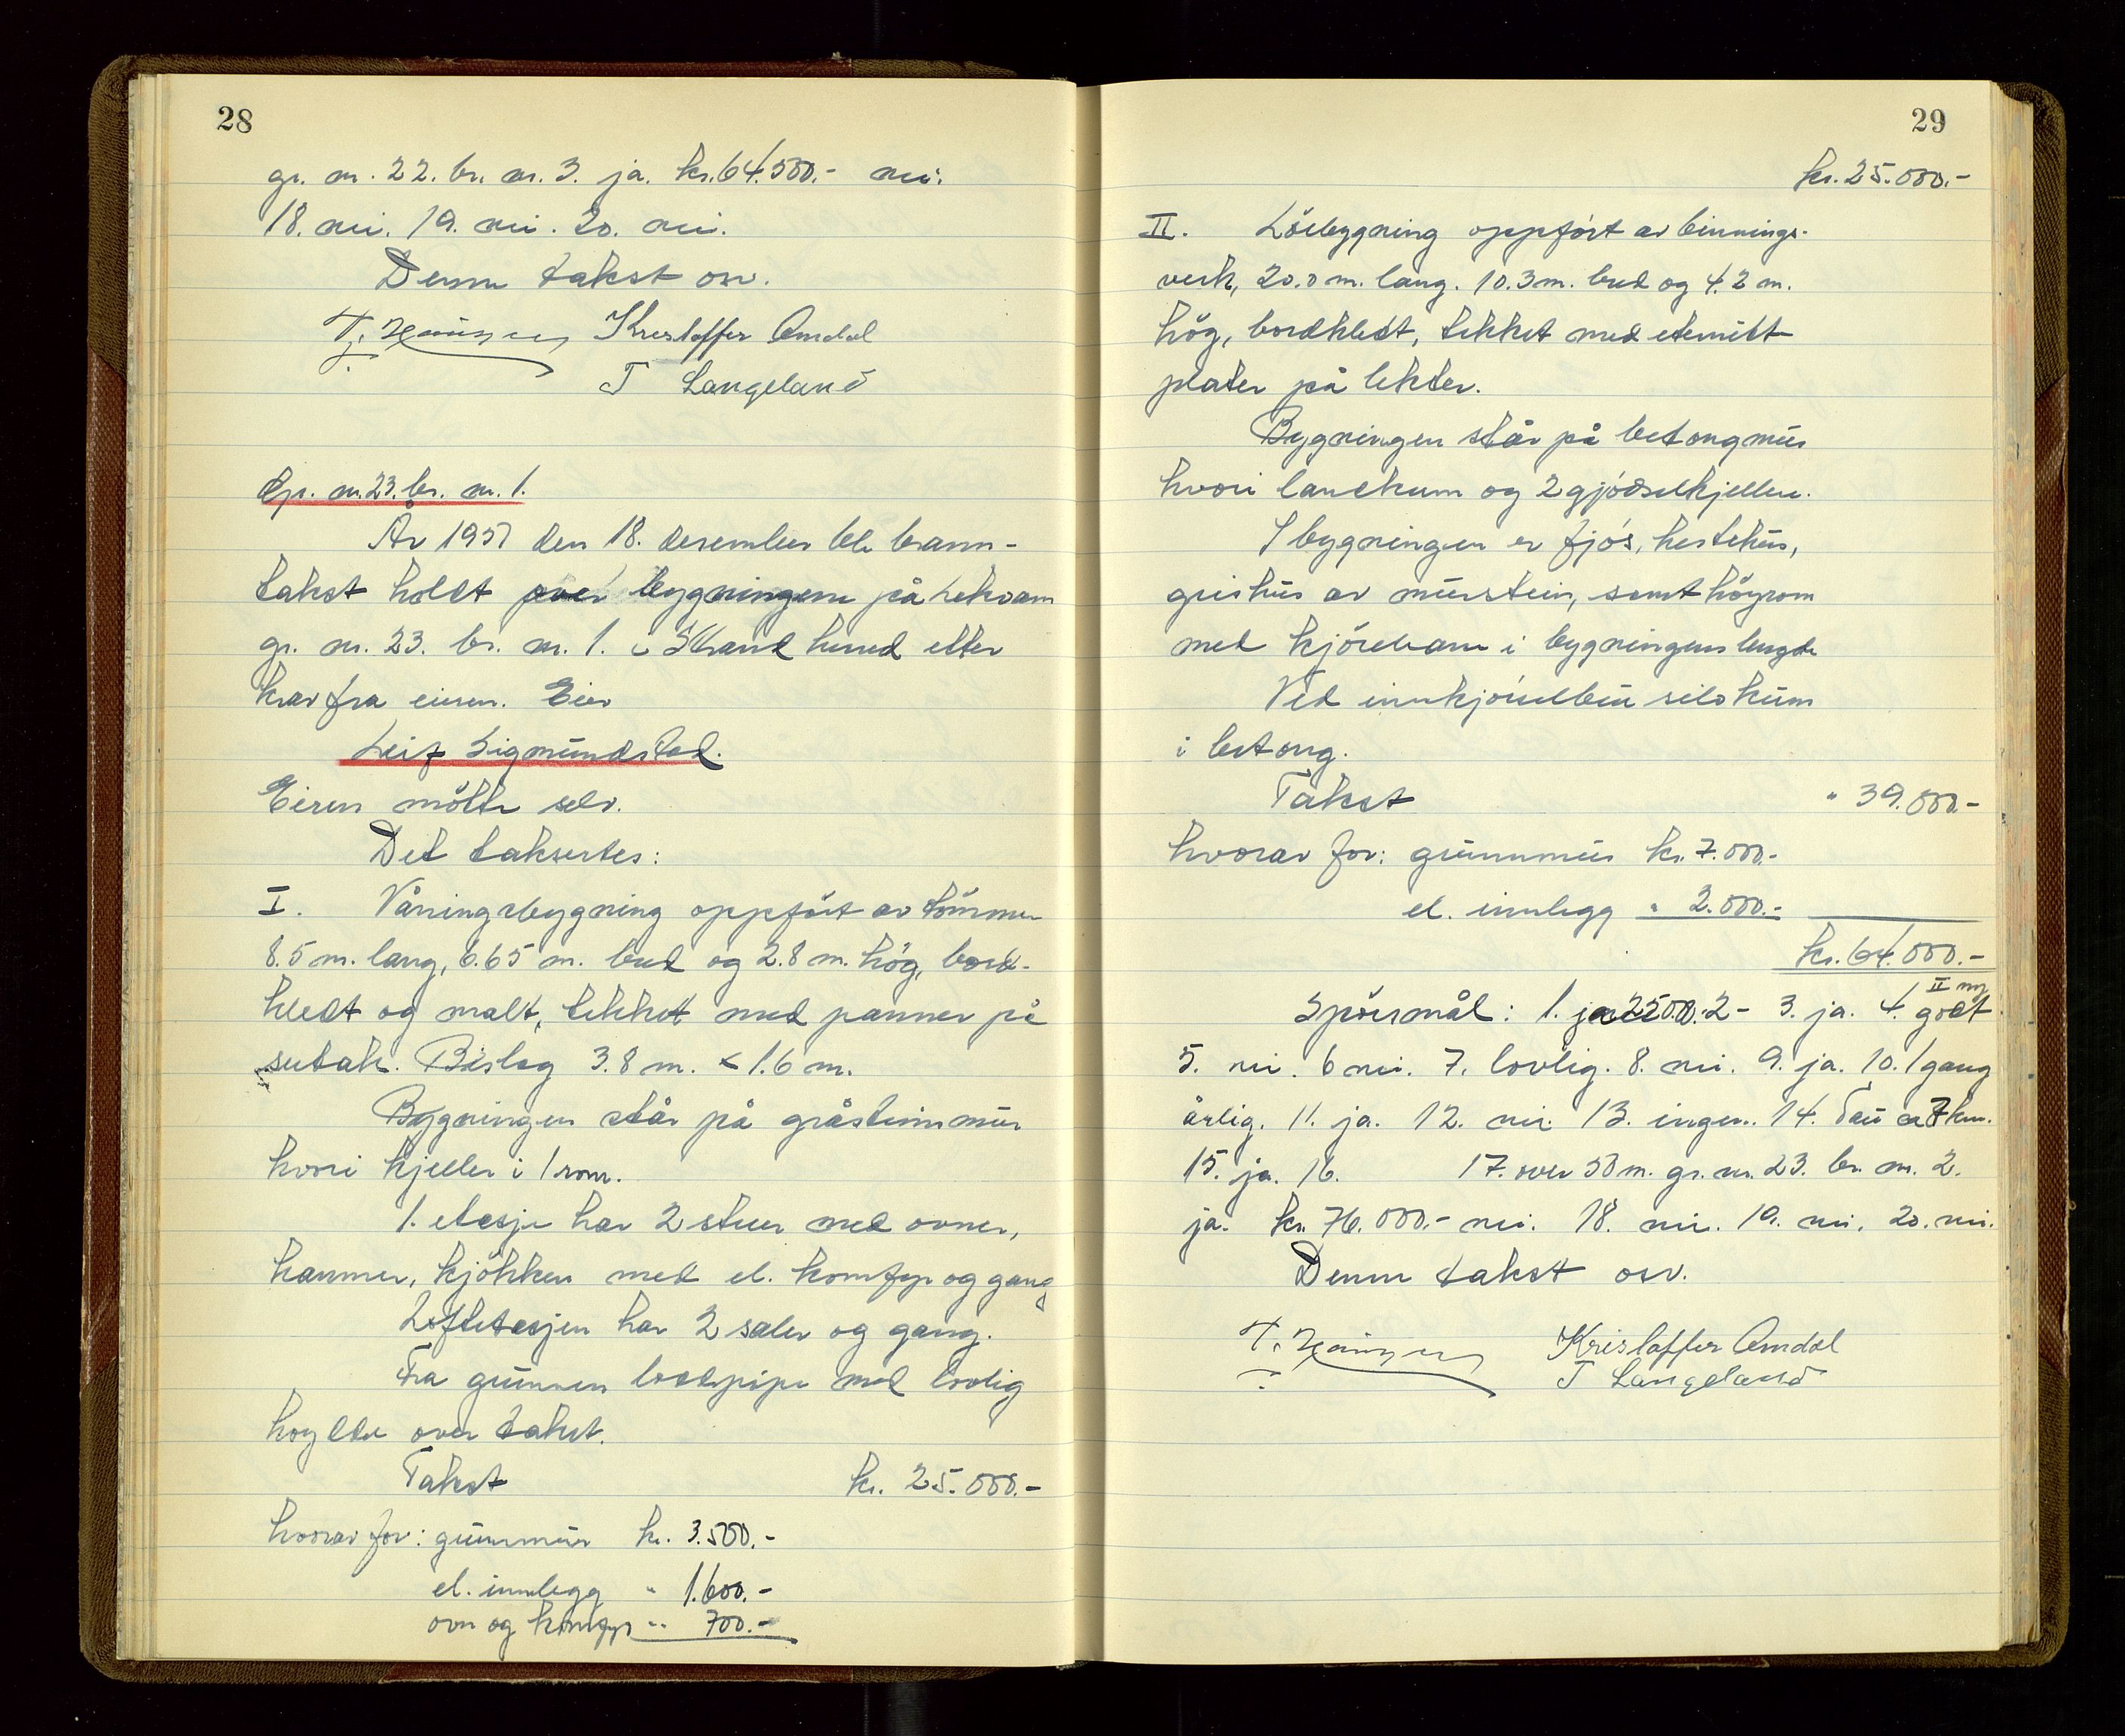 28
gr. nr. 22. br. nr. 3. ja. kr. 64.500.- nei.
18. nei. 19. nei. 20. nei.
Denne takst osv.
Kristoffer Amdal
T Langeland
Gr. nr. 23. br. nr. 1.
År 1957 den 18. desember ble brann-
takst holdt over bygningene på Lekvam
gr. nr. 23. br. nr. 1. i Strand herred etter
krav fra eieren. Eier
Leif Sigmundstad.
Eieren møtte selv.
Det takseres:
I. Våningsbygning oppført av tömmer
8.5 m. lang, 6.65 m. bred og 2.8 m. hög, bord-
kledt og malt, tekket med panner på
sutak. Bislag 3.8 m. x 1.6 m.
Bygningen står på gråsteinsmur
hvori kjeller i 1 rom.
1. etasje har 2 stuer med ovner,
kammer, kjökken med el. komfyr og gang
Loftetasjen har 2 saler og gang.
Fra grunnen brandpipe med lovlig
hoyde over taket.
Takst kr. 25.000.-
hvorav for: grunnmur kr. 3.500.-
el. innlegg " 1.600.-
ovn og komfyr " 700.-
29
kr. 25.000.-
II. Löebygning oppfört av binnings-
verk, 20.0 m. lang. 10.3 m. bred og 4.2 m.
hög, bordkledt, tekket med eternitt
plater på lekter.
Bygningen står på betongmur
hvori landkum og 2 gjödselkjellere.
I bygningen er fjös, hestehus,
grishus av murstein, samt höyrom
med kjörebane i bygningens lengde
Ved innkjörselbru silokum
i betong.
Takst " 39.000.-
hvorav for: grunnmur kr. 7.000.-
el. innlegg " 2.000.-
kr. 64.000.-
II ny
Spörsmål: 1. ja 2500. 2 - 3. ja. 4. godt
5. nei. 6 nei. 7. lovlig. 8. nei. 9. ja. 10. 1 gang
årlig. 11. ja. 12. nei 13. ingen. 14. Tau ca 7 km.
15. ja. 16. 17. over 50 m. gr. nr. 23. br. nr. 2.
ja. kr. 76.000.- nei. 18. nei. 19. nei. 20. nei.
Denne takst osv.
Kristoffer Amdal
T Langeland